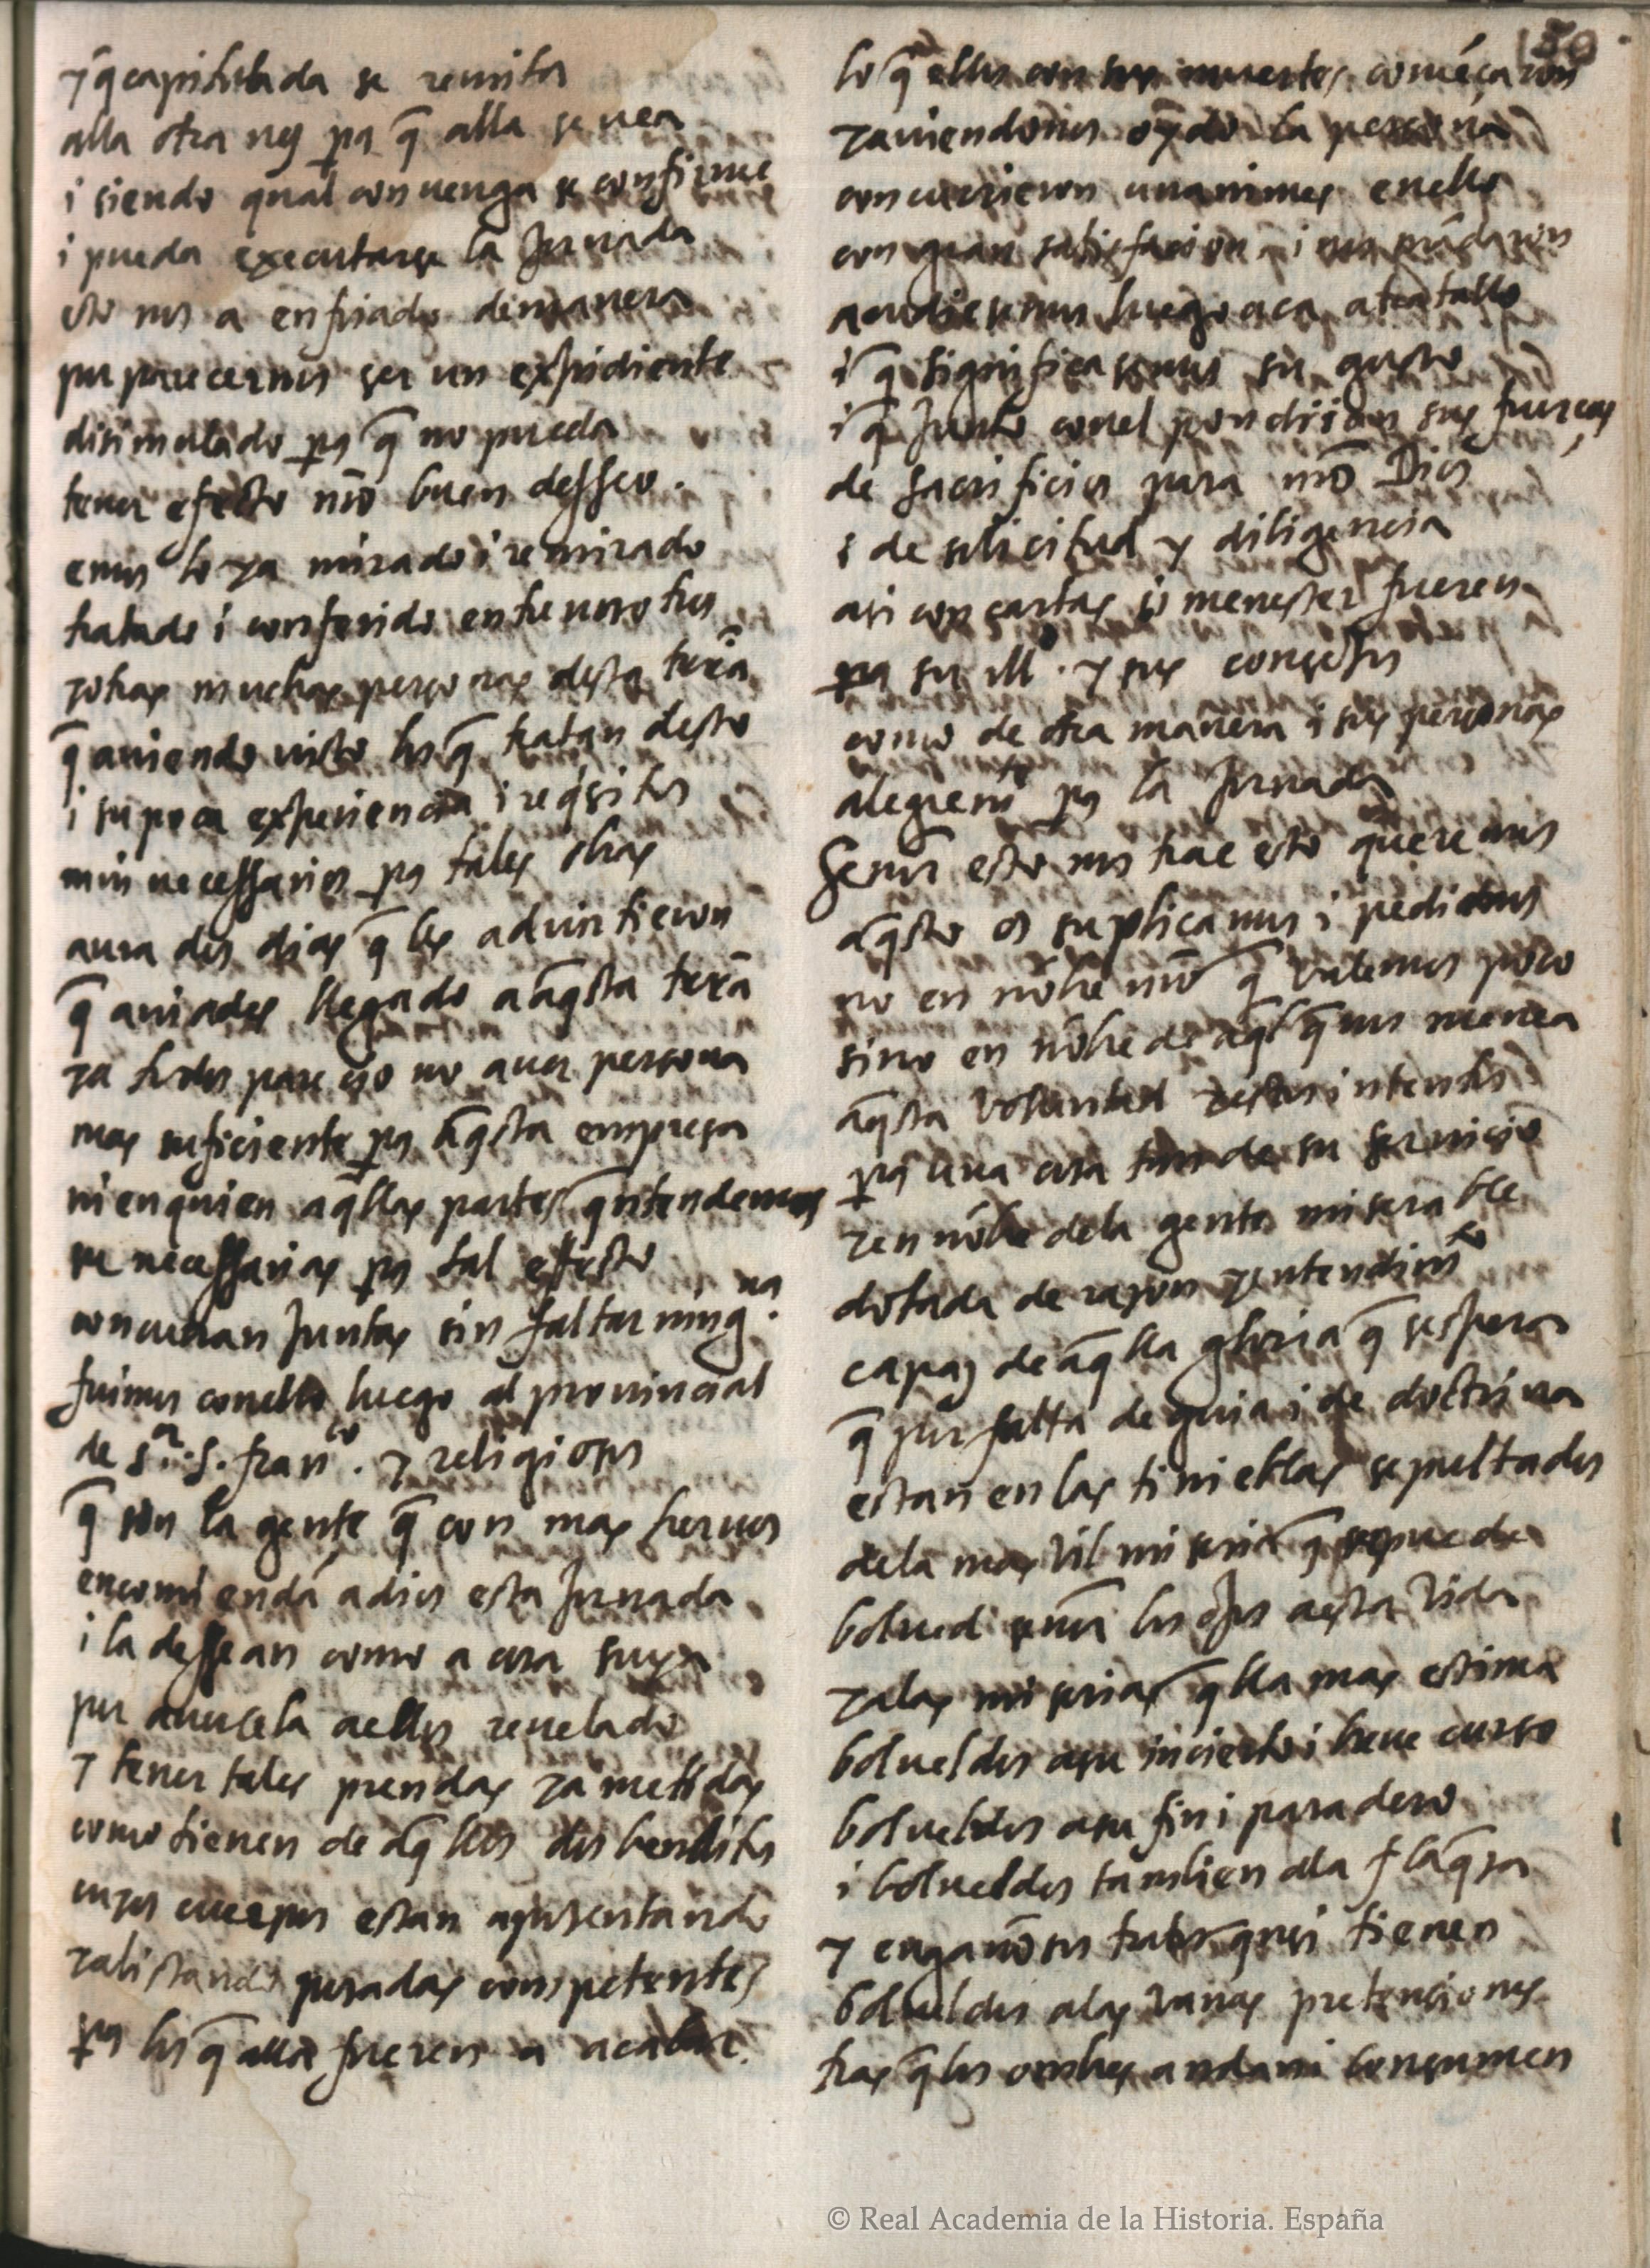 150
y q̄ capitulada se remita
alla otra vez pa q̄ alla se vea
i siendo qual convenga se confirme
i pueda executarse la Jornada
esto nos a enfriado de manera
por parecernos ser un expidiente
disimulado pa q̄ no pueda
tener efecto nrō buen desseo.
emos lo ya mirado i remirado
tratado i conferido entre nosotros
y otras muchas personas desta terrā
q̄ aviendo visto los q̄ tratan desto
i su poca experiencia i reqisitos
mui necessarios pa tales obras
aura dos dias q̄ les advirtieron
q̄ aviades llegado a aq̄sta terrā
y a todos pareçio no aver persona
mas suficiente pa aq̄sta empresa
ni en quien aq̄llas partes q̄ntendemos
se necessarias pa tal effecto
concurran Juntas sin faltar ningna.
fuimos con ello luego al provincial
de sor. S. franco. y religiosos
q̄ son la gente q̄ con mas hervor
encomiendā a dios esta Jornada
i la dessean como a cosa suya
por averse la a ellos revelado
y tener tales prendas ya metidas
como tienen de aq̄llos dos benditos
cuyos cuerpos estan aposentando
y alistando posadas competentes
pa los q̄ alla fueren a acabar.
lo q̄ ellos con sus muertes comēçaron
y aviendonos oydo la persona
concurrieron unanimes en ello
con gran satisfacion i nos mādaron
acudiesemos luego aca a tratallo
i q̄ significasemos su gusto
i q̄ Junto con el pondrian sus fuerças
de sacrificios para nrō Dios
i de solicitud y diligencia
asi con cartas si menester fueren
pa su ill. y sus consejos
como de otra manera i sus personas
alegremte pa la Jornada
Senōr esto nos trae esto queremos
aq̄sto os suplicamos i pedimos
no en nōbre nrō q̄ valemos poco
sino en nōbre de aq̄l q̄ nos menea
aq̄sta voluntad y estos intentos
pa una cosa tan de su serviçio
y en nōbre de la gente miserable
dotada de razon y entendimto
capaz de aq̄lla gloria q̄ se espera
q̄ por falta de guia i de doctrina
estan en las tinieblas sepultados
de la mas vil miseria q̄ se puede
bolved senōr los ojos a esta vida
y a las miserias q̄lla mas estima
bolveldos a su incierto i breve curso
bolveldos a su fin i paradero
i bolveldos tambien a la flaq̄za
y engañosos tratos q̄n si tienen
bolveldos a las vanas pretensiones
tras q̄ los ombres andan i consumen
© Real Academia de la Historia. España